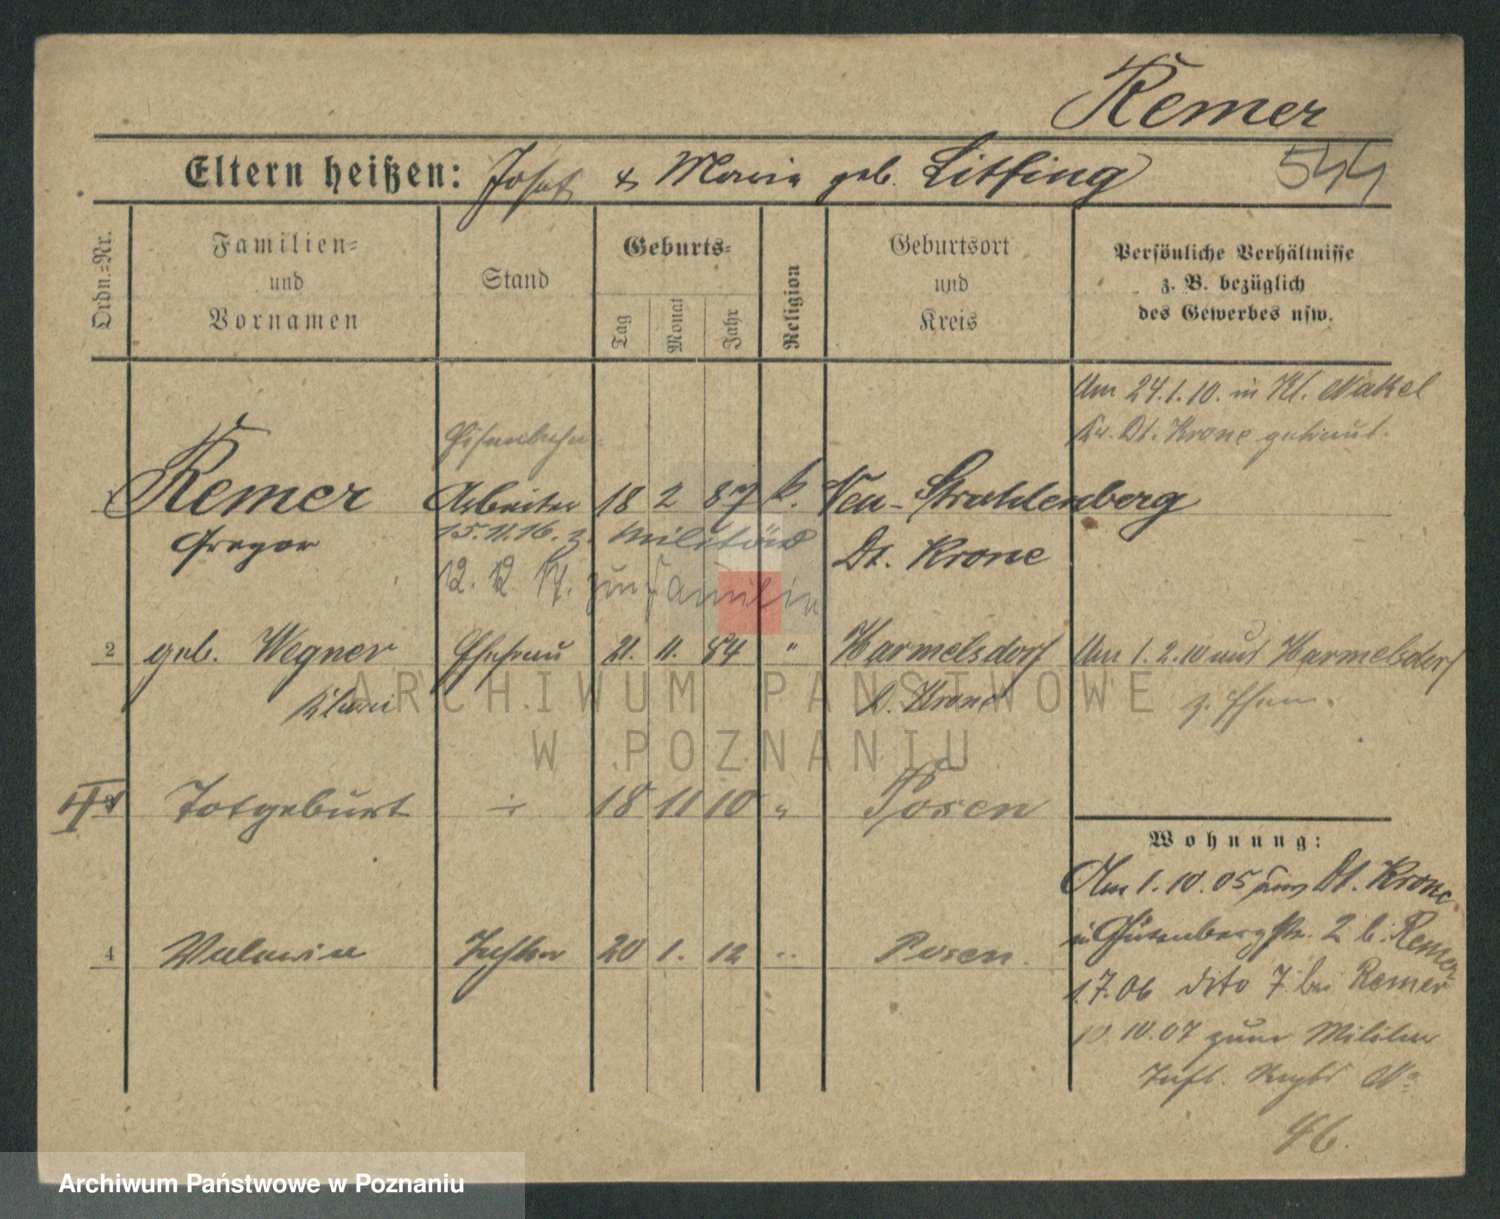 Remer
Eltern heißen: Josef & Maria geb. Litfing
544
Ordn.=Nr.
Familien=
und
Vornamen
Stand
Geburts=
Tag
Monat
Jahr
Religion
Geburtsort
und
Kreis
Persönliche Verhältnisse
z. B. bezüglich
des Gewerbes usw.
Am 24.1.10. in Kl. Nakel
Kr. Dt. Krone getraut.
Eisenbahn-
Remer Arbeiter 18 2 87 k. Neu-Strahlenberg
Gregor Dt. Krone
15.11.16. z. Militär
12. 12. 17. zur Familie
2 geb. Wegner Ehefrau 21. 11. 84 " Harmelsdorf Am 1.2.10 aus Harmelsdorf
Klara Krone z. Ehem.
Totgeburt 18 11 10 " Posen
4 Valeria Tochter 20 1. 12 " Posen.
Wohnung:
Am 1.10.05 aus Dt. Krone
Gutenbergstr. 2 b. Remer
1.7.06 dito 7 bei Remer
10.07 zum Militär
Inft. Regt No
46.
ARCHIWUM PAŃSTWOWE
W POZNANIU
Archiwum Państwowe w Poznaniu